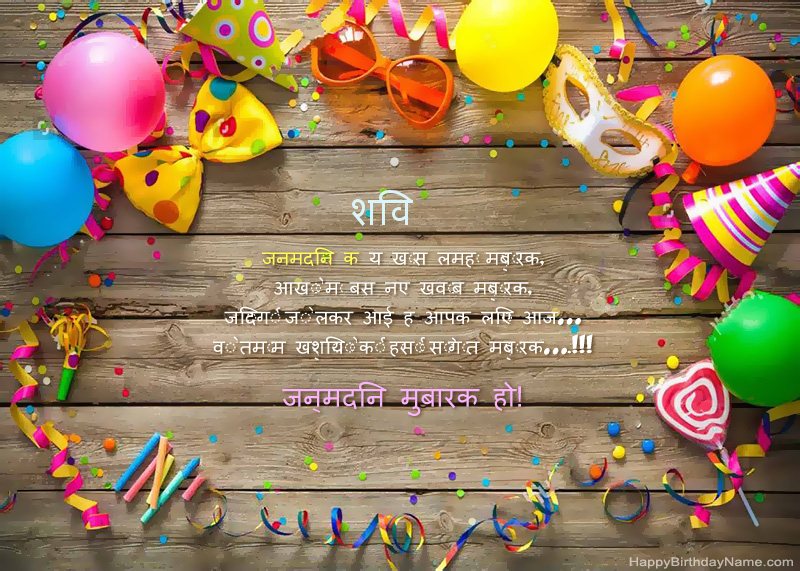 शवि
जनमदनि क य खास लमहा मबारक,
आखो मे बस नए खवाब मबारक,
जदिगी जो लेकर आई ह आपक लएि आज...
वो तमाम खशयिो की हसी सौगात मबारक...!!!
जन्मदनि मुबारक हो!
HappyBirthdayName.com